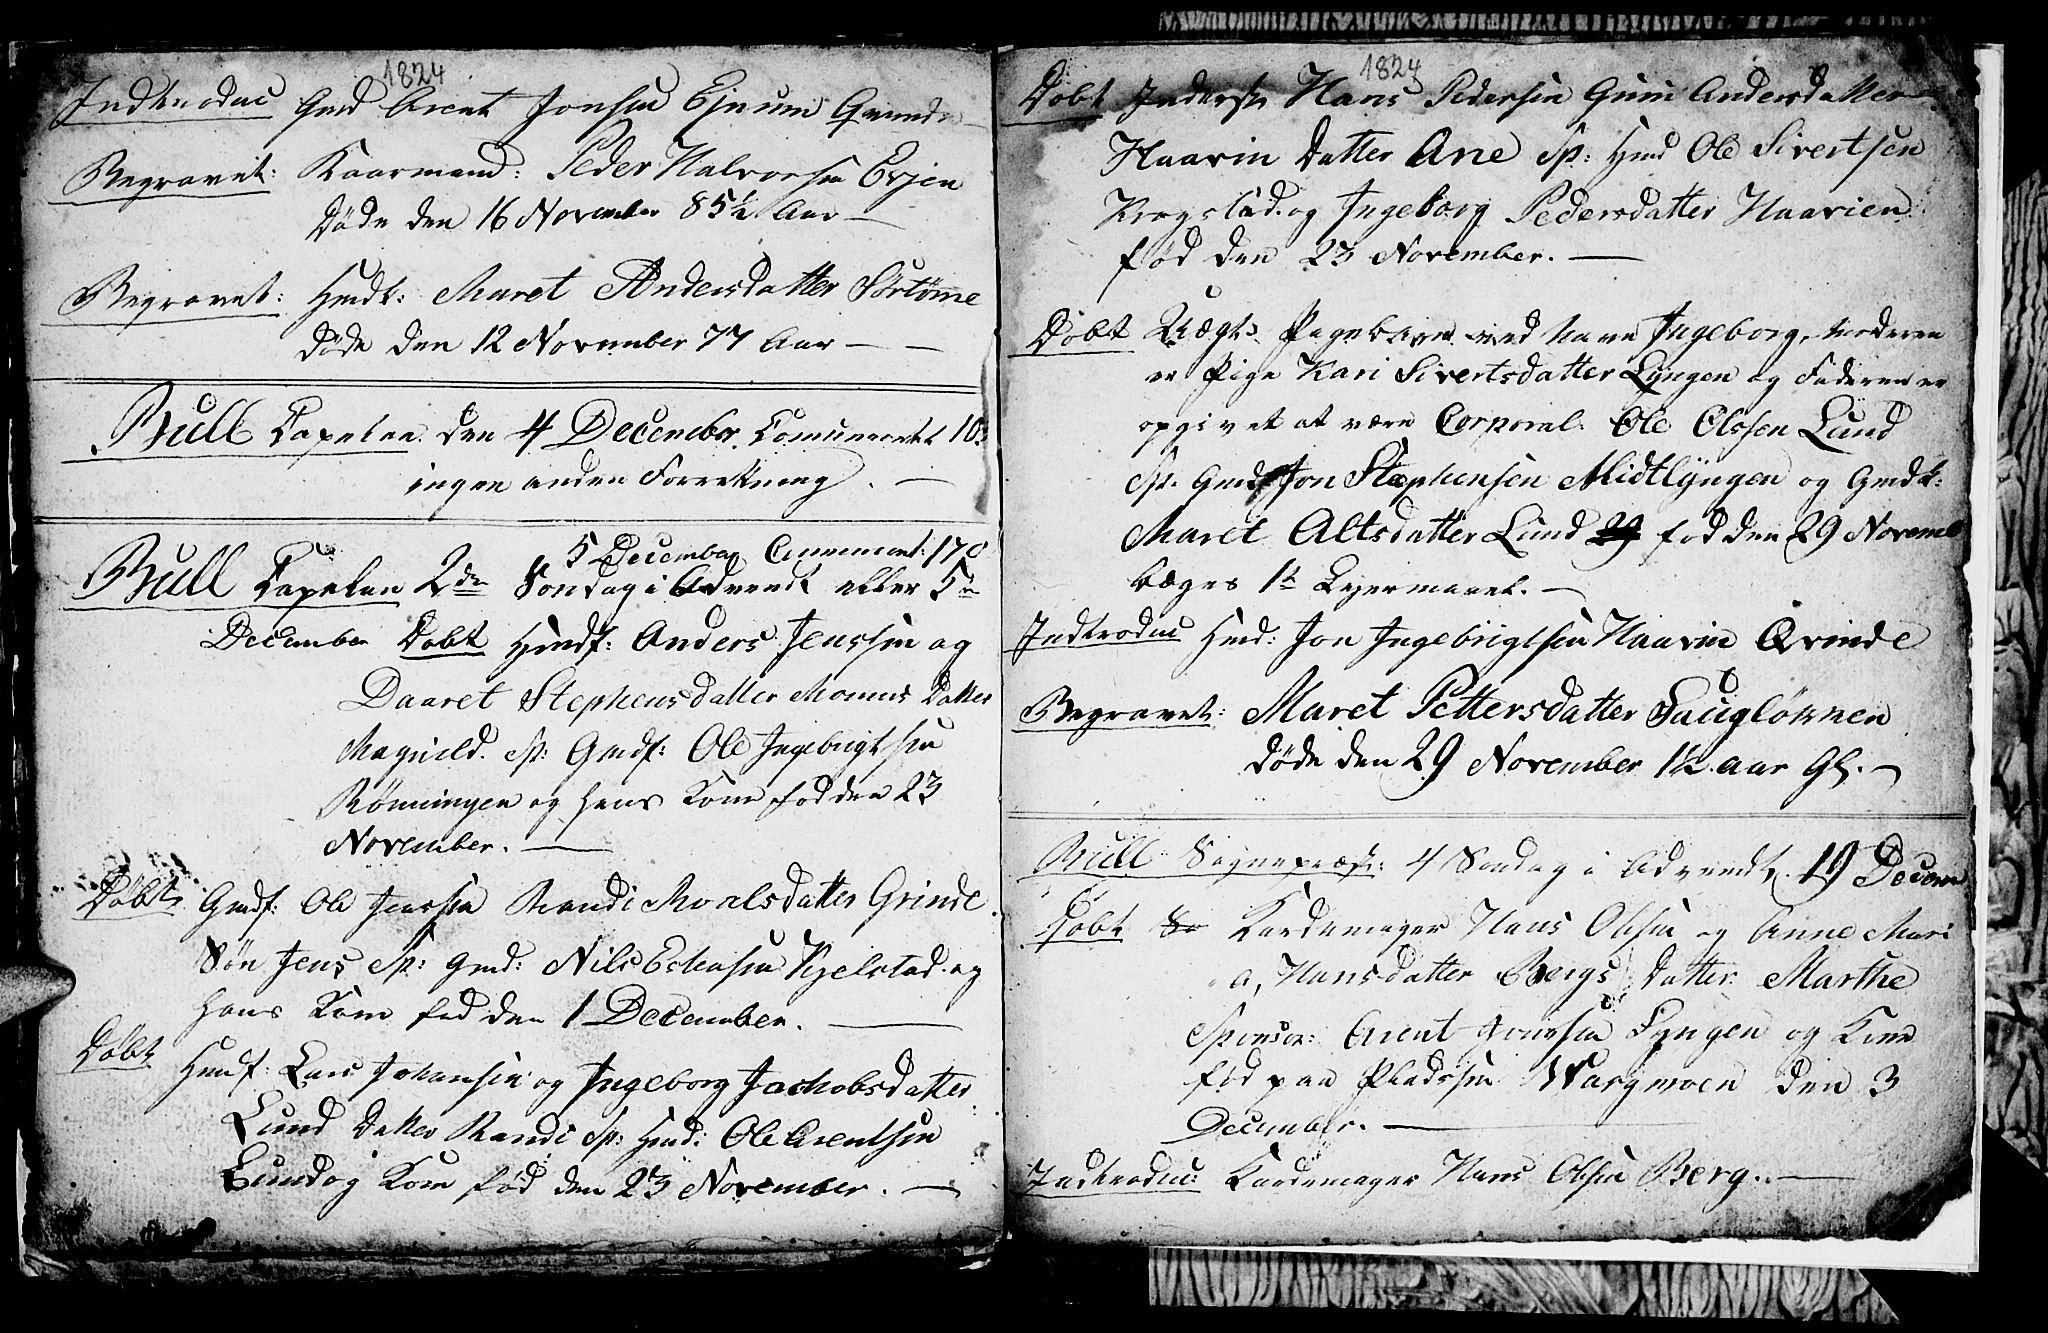 1824
Indtroduc Gmd Arent Jonsen Ejnum Qvinde
Begravet: Kaarmand: Peder Halvorsen Evjen
Døde den 16 November 85½ Aar
Begravet: Hmdk: Maret Andersdatter Sørtømme
døde den 12 November 77 Aar
Bull Capelan den 4 December Comuneret 10
ingen anden Forretning.
5 December Comuneret 170
Bull Capelan 2den Søndag i Advendt eller 5te
December Døbt Hmdf: Anders Jenssen og
Daaret Stephensdatter Momus Datter
Magnild. Sp: Gmdf: Ole Ingebrigtsen
Rønningen og hans Kone fød den 23
November.
Døbt Gmdf: Ole Jenssen Randi Moalsdatter Grinde
Søn Jens Sp: Gmd: Nils Estensen Kjelstad og
hans Kone fød den 1 December.
Døbt Hmdf: Lars Johansen og Ingeborg Jachobsdatter
Lund Datter Randi Sp: Hmd: Ole Arentsen
Lund og Kone fød den 23 November.
1824
Døbt Inderst Hans Pedersen Guru Andersdatter
Haavin Datter Ane Sp: Hmd Ole Sivertsen
Krogstad og Ingeborg Pedersdatter Haavien
fød den 23 November.
Døbt Uægte Pigebarn ved Navn Ingeborg, Moderen
er Pige Kari Sivertsdatter Lyngen og Faderen er
opgivet at være Corporal Ole Olssen Lund
Sp: Gmd Jon Stephensen Midtlyngen og Gmdk:
Maret Altsdatter Lund 29 fød den 29 Novemb
begges 1te Lejermaael.
Indtroduc Hmd: Jon Ingebrigtsen Haavin Qvinde
Begravet: Maret Pettersdatter Saugløkken
døde den 29 November 1½ aar Gl.
Bull Sognepræst: 4 Søndag i Advendt 19 Decem
Døbt So Kardemager Hans Olsen og Anne Mari
a, Hansdatter Bergs Datter: Marthe
Sponsor: Arent Jonssen Lyngen og Kone
fød paa Pladsen Wargmoen den 3
December.
Indtroduc: Kardemager Hans Olsen Berg.